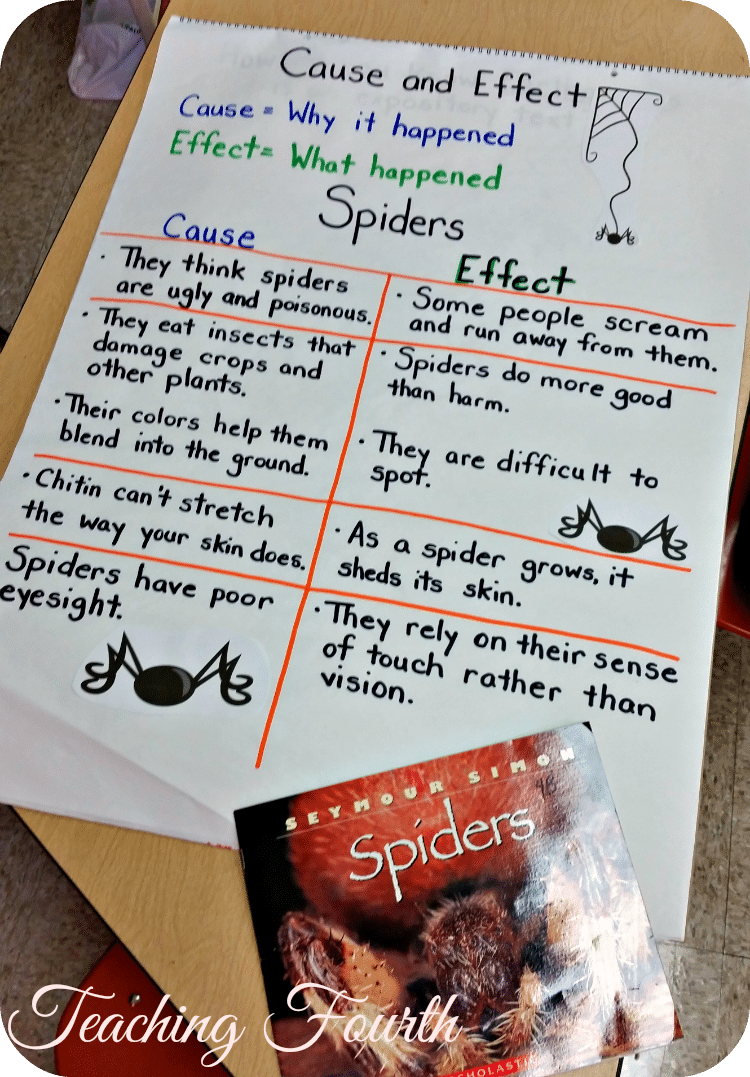 Cause and Effect
Cause = Why it happened
Effect = What happened
Spiders
Cause
Effect
· They think spiders
are ugly and poisonous.
· Some people scream
and run away from them.
· They eat insects that
damage crops and
other plants.
· Spiders do more good
than harm.
· Their colors help them
blend into the ground.
· They are difficult to
spot.
· Chitin can't stretch
the way your skin does.
· As a spider grows, it
sheds its skin.
Spiders have poor
eyesight.
· They rely on their sense
of touch rather than
vision.
SEYMOUR SIMON
Spiders
SCHOLASTIC
Teaching Fourth